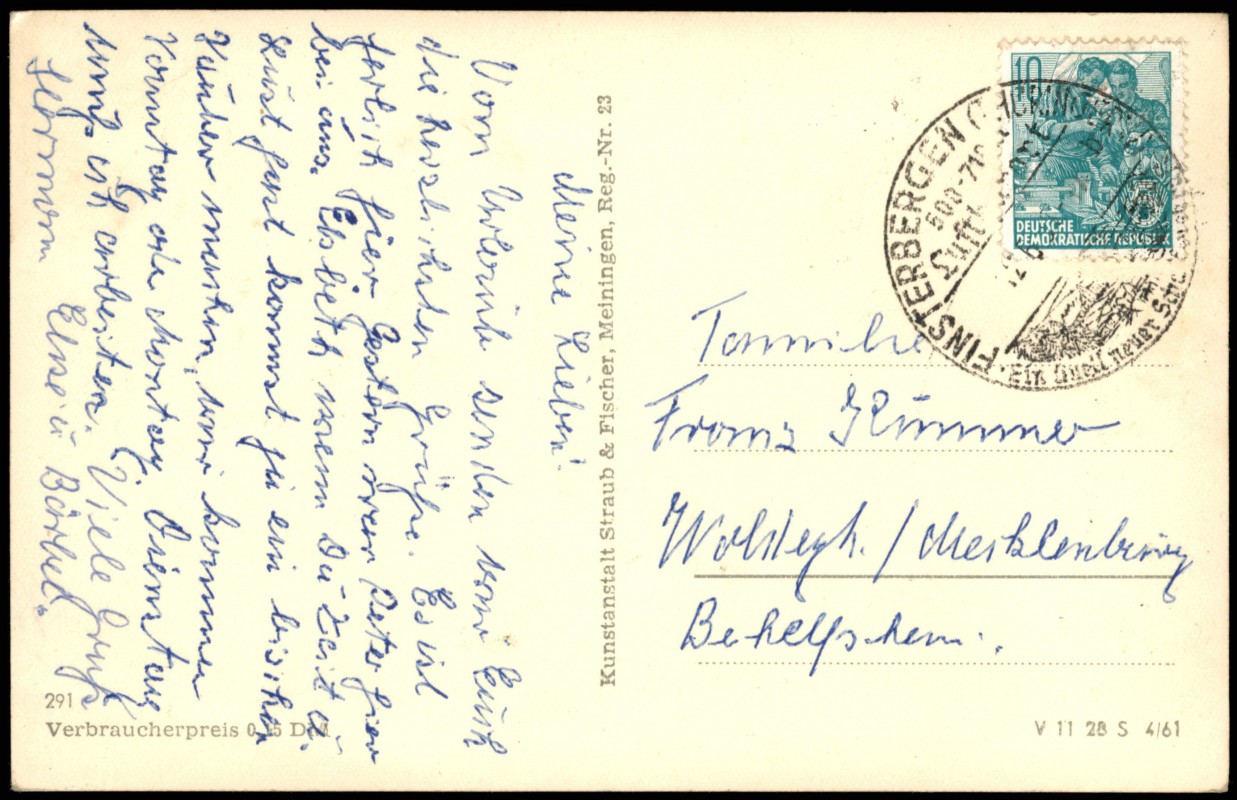 Meine Lieben!
Vom Urlaub senden wir Euch
die herzlichsten Grüße. Es ist
herrlich hier. Gestern war Peter hier
bei uns. Elsbeth wenn Du Zeit u.
Lust hast kommst ja ein bischen
sauber machen, wir kommen
Sonntag oder Montag. Dienstag
muß ich arbeiten. Viele Grüße
Hermann Else u. Bärbel.
291
Verbraucherpreis 0,15 DM
Kunstanstalt Straub & Fischer, Meiningen, Reg.-Nr. 23
10
DEUTSCHE
DEMOKRATISCHE REPUBLIK
FINSTERBERGEN (THÜRINGER WALD)
500-710
Luft
Ein Quell neuer
Familie
Franz Kummer
Woldegk. / Mecklenburg
Behelfsheim.
V 11 28 S 4/61